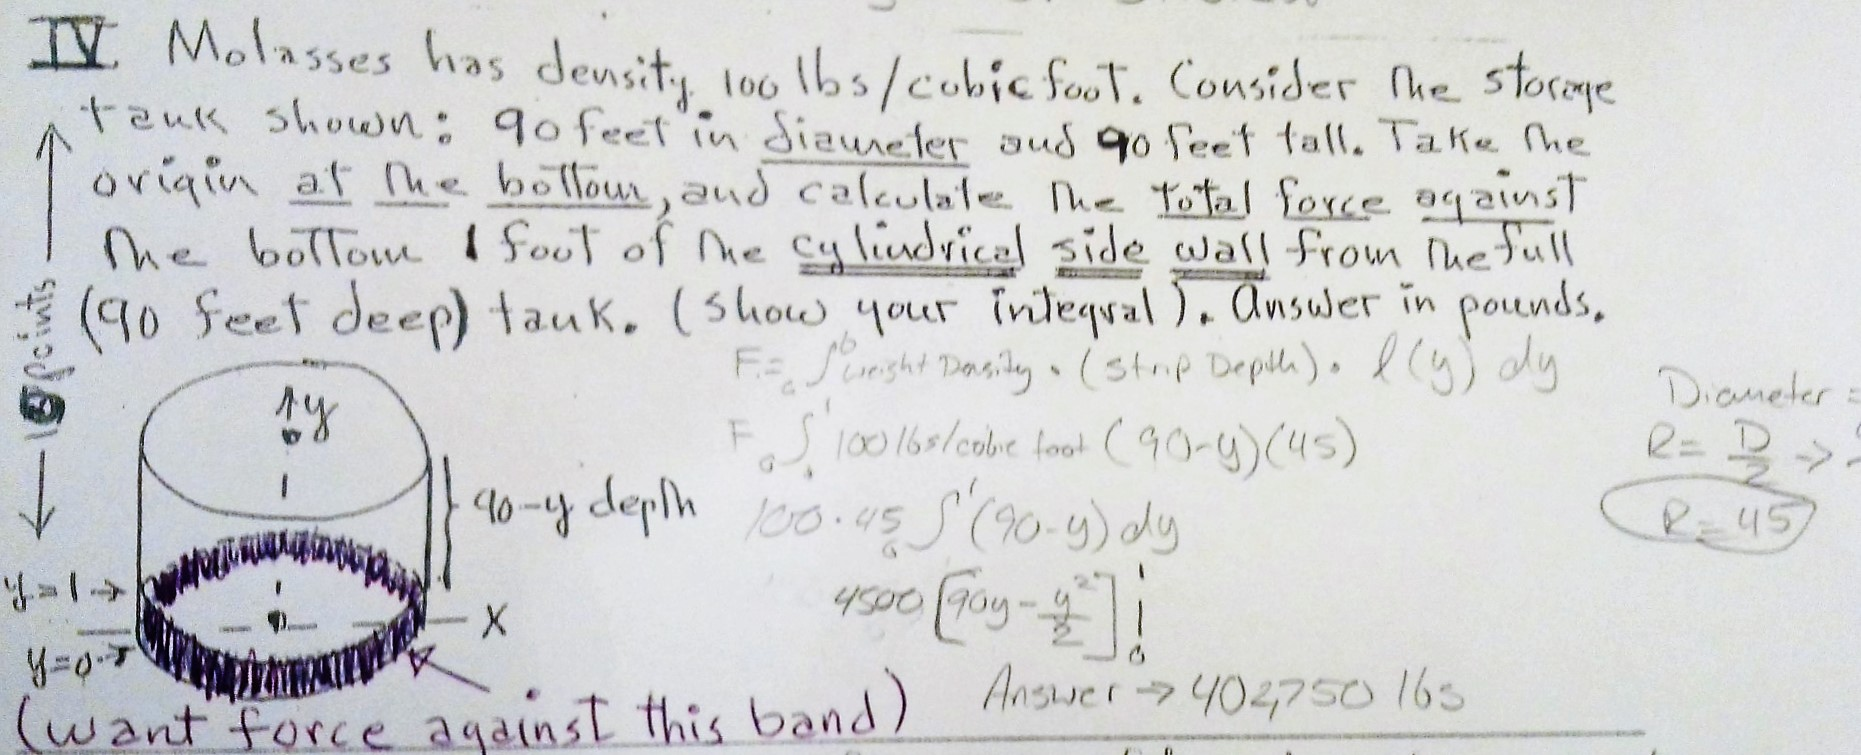 IV Molasses has density 100 lbs/cubic foot. Consider the storage
tank shown: 90 feet in diameter and 90 feet tall. Take the
origin at the bottom, and calculate the total force against
the bottom 1 foot of the cylindrical side wall from the full
(90 feet deep) tank. (show your integral). Answer in pounds.
points
F = ∫ₐᵇ weight Density · (strip Depth) · l(y) dy
F ₀∫¹ 100 lbs/cubic foot (90-y)(45)
100·45 ₀∫¹ (90-y) dy
4500 [90y - y²/2] ¹₀
Answer → 402,750 lbs
Diameter =
R = D/2 →
R = 45
y
90-y depth
y=1 →
X
y=0 →
(want force against this band)